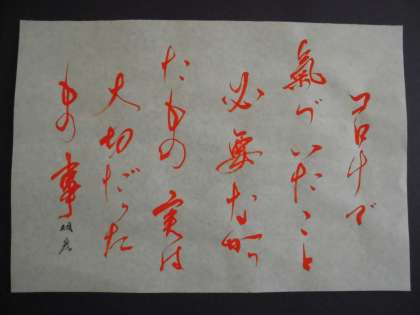 コロナで
氣づいたこと
必要なかっ
たもの 実は
大切だった
もの 事